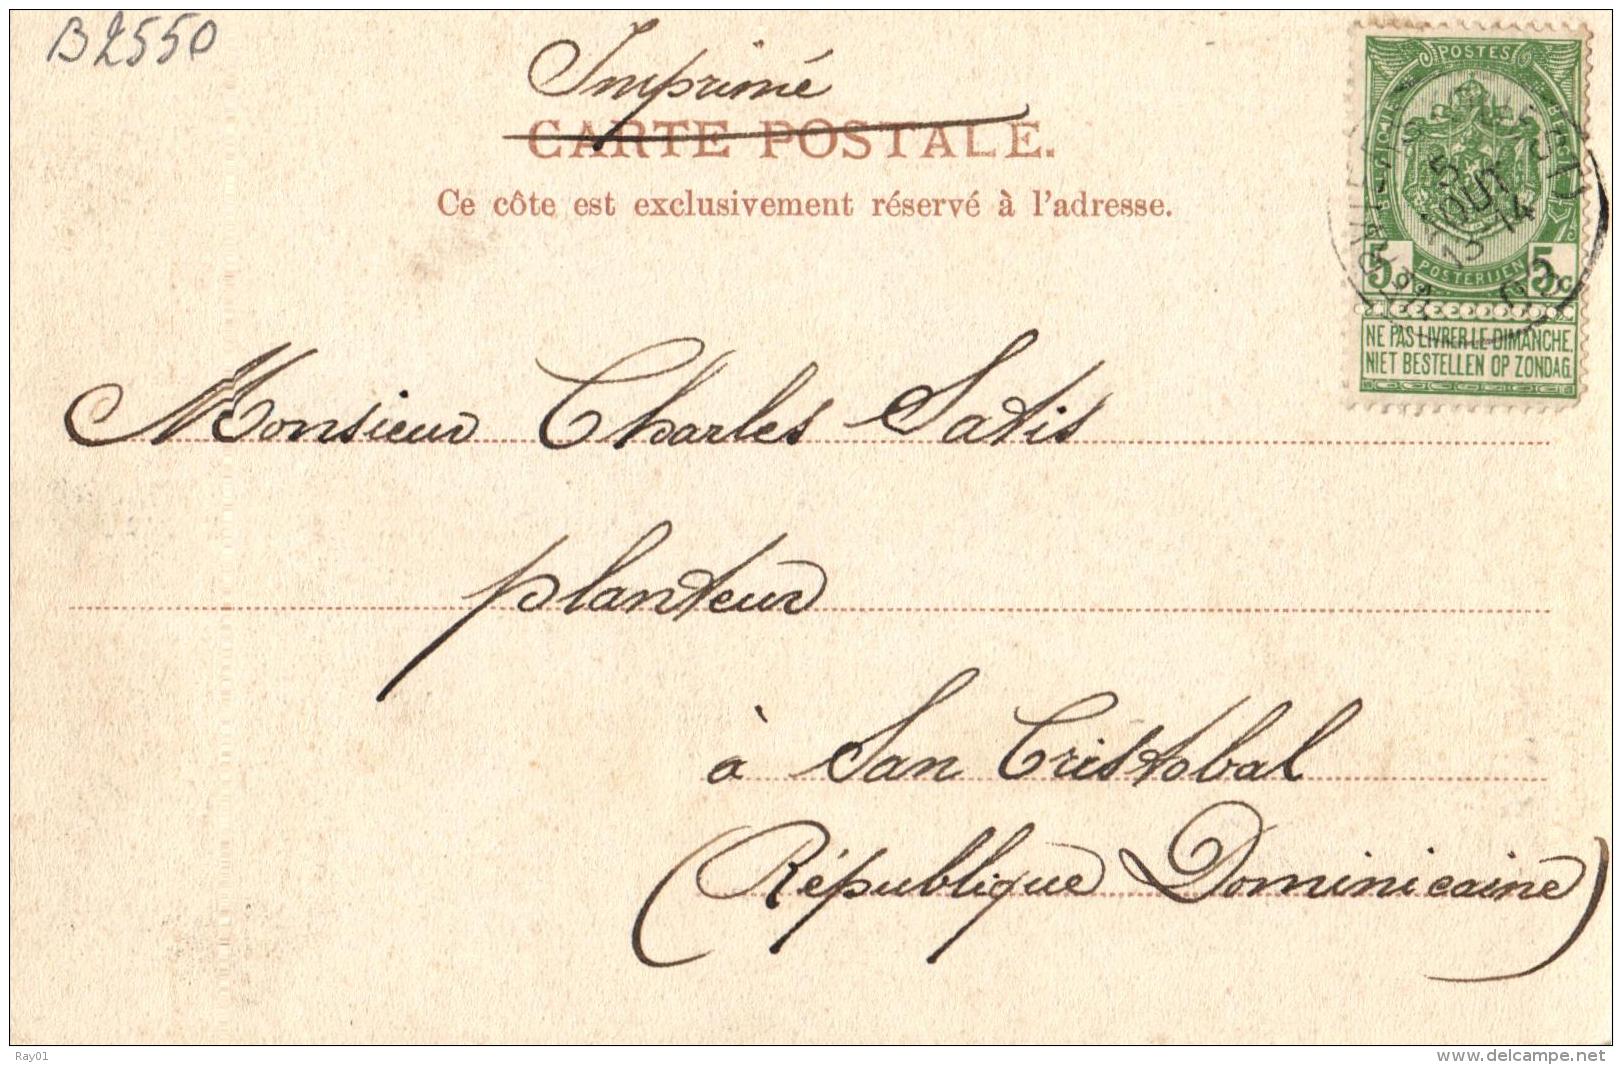 B2550
Imprimé
CARTE POSTALE.
Ce côte est exclusivement réservé à l'adresse.
POSTES
5 AOUT
13-14
5c POSTERIJEN 5c
NE PAS LIVRER LE DIMANCHE.
NIET BESTELLEN OP ZONDAG.
Monsieur Charles Satis
planteur
à San Cristobal
(République Dominicaine)
Ray01
www.delcampe.net